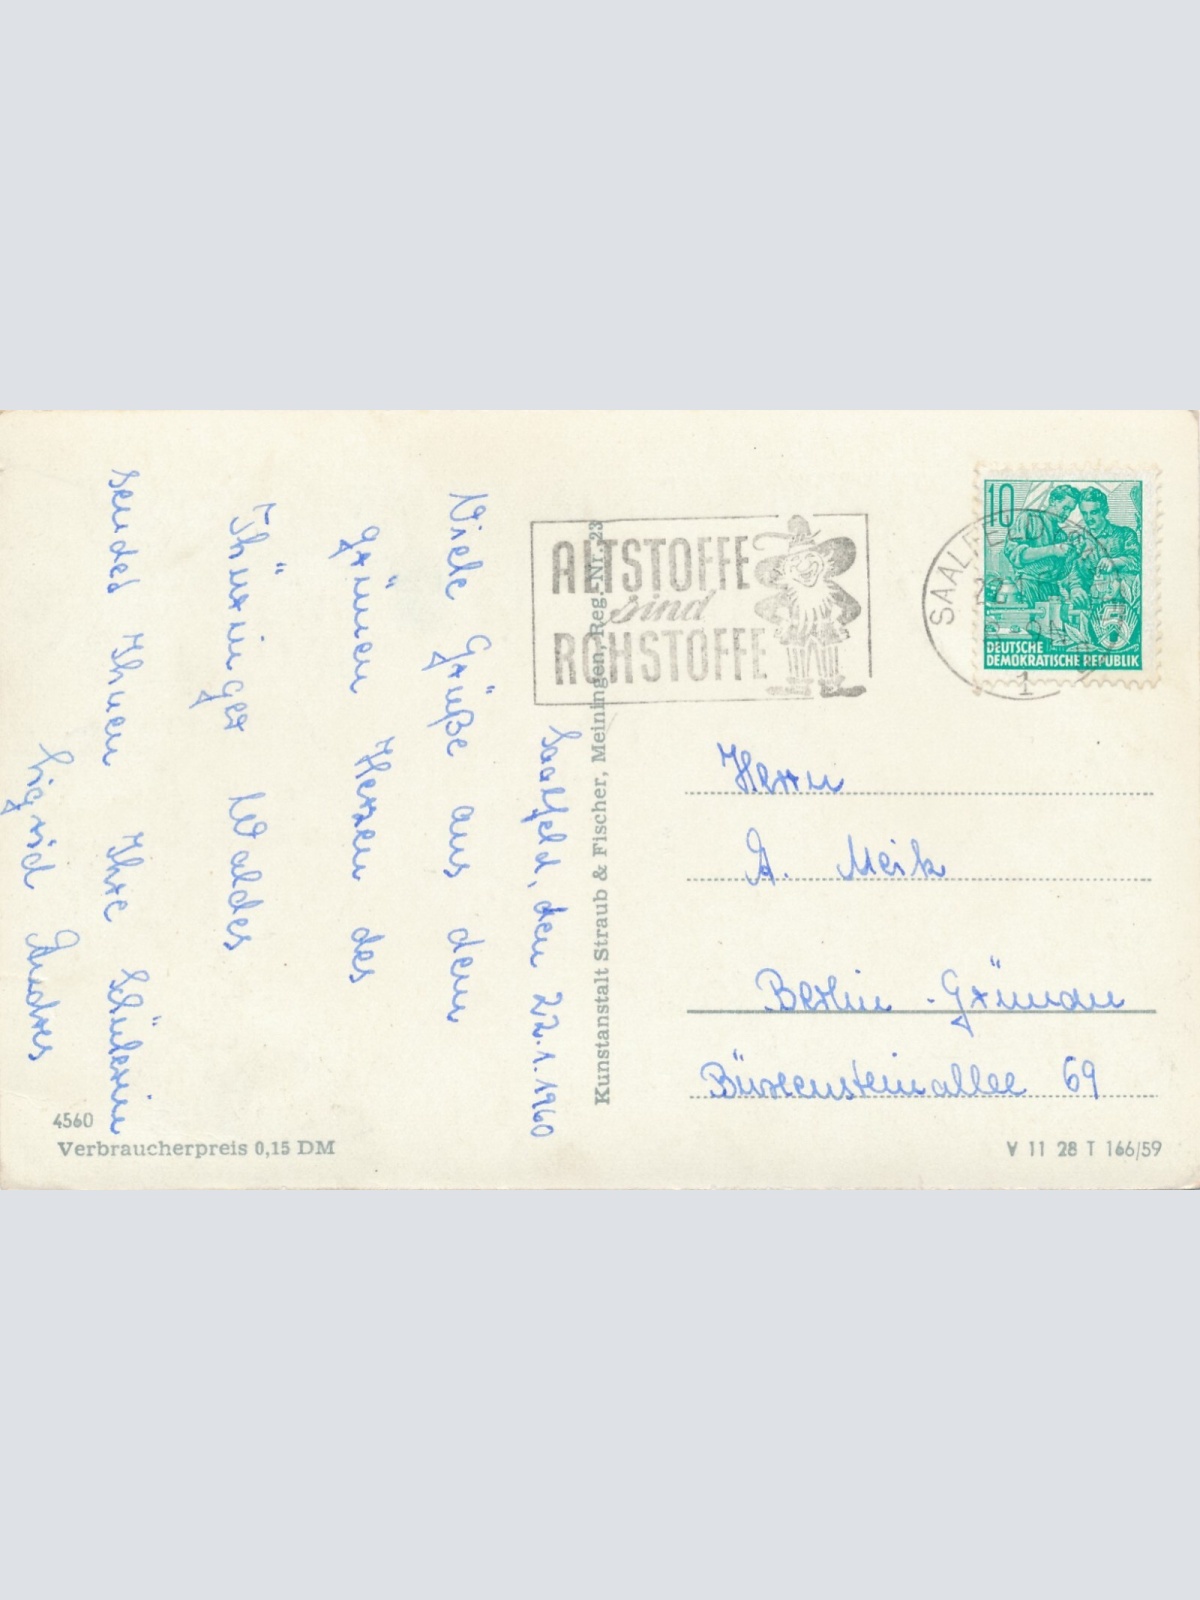 Saalfeld, den 22.1.1960
Viele Grüße aus dem
grünen Herzen des
Thüringer Waldes
sendet Ihnen Ihre Schülerin
Sigrid Endres
4560
Verbraucherpreis 0,15 DM
Kunstanstalt Straub & Fischer, Meiningen, Reg.-Nr. 23
ALTSTOFFE
sind
ROHSTOFFE
SAALFE
1
10
DEUTSCHE
DEMOKRATISCHE REPUBLIK
Herrn
A. Meik
Berlin-Grünau
Büxensteinallee 69
V 11 28 T 166/59